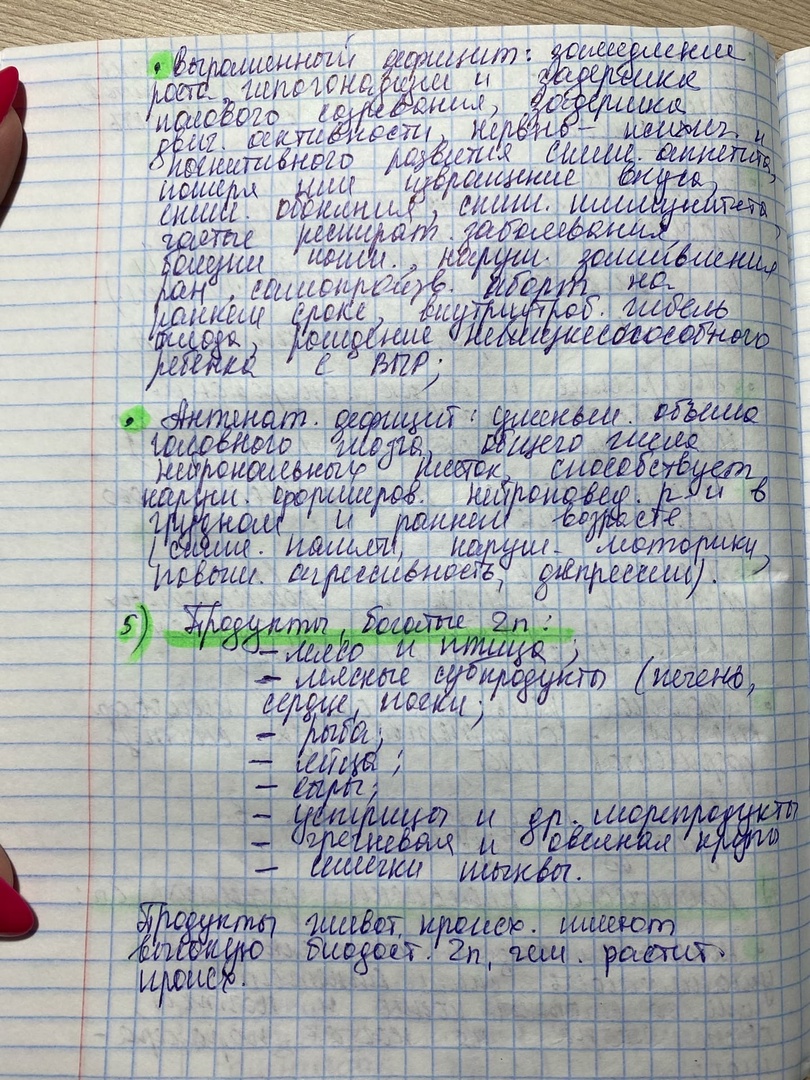 • Выраженный дефицит: замедление
роста, гипогонадизм и задержка
полового созревания, задержка
двиг. активности, нервно-психич. и
когнитивного развития сниж. аппетита,
потеря или извращение вкуса,
сниж. обоняния, сниж. иммунитета,
частые респират. заболевания,
болезни кожи, наруш. заживления
ран, самопроизв. аборт на
раннем сроке, внутриутроб. гибель
плода, рождение нежизнеспособного
ребенка с ВПР;
• Антенат. дефицит: уменьш. объема
головного мозга, общего числа
нейрональных клеток, способствует
наруш. формиров. нейроповед. р-й в
грудном и раннем возрасте
(сниж. памяти, наруш. моторики,
повыш. агрессивность, депрессии).
5) Продукты, богатые Zn:
– мясо и птица;
– мясные субпродукты (печень,
сердце, почки;
– рыба;
– яйца;
– сыры;
– устрицы и др. морепродукты
– гречневая и овсяная крупы
– семечки тыквы.
Продукты живот. происх. имеют
высокую биодост. Zn, чем растит.
происх.